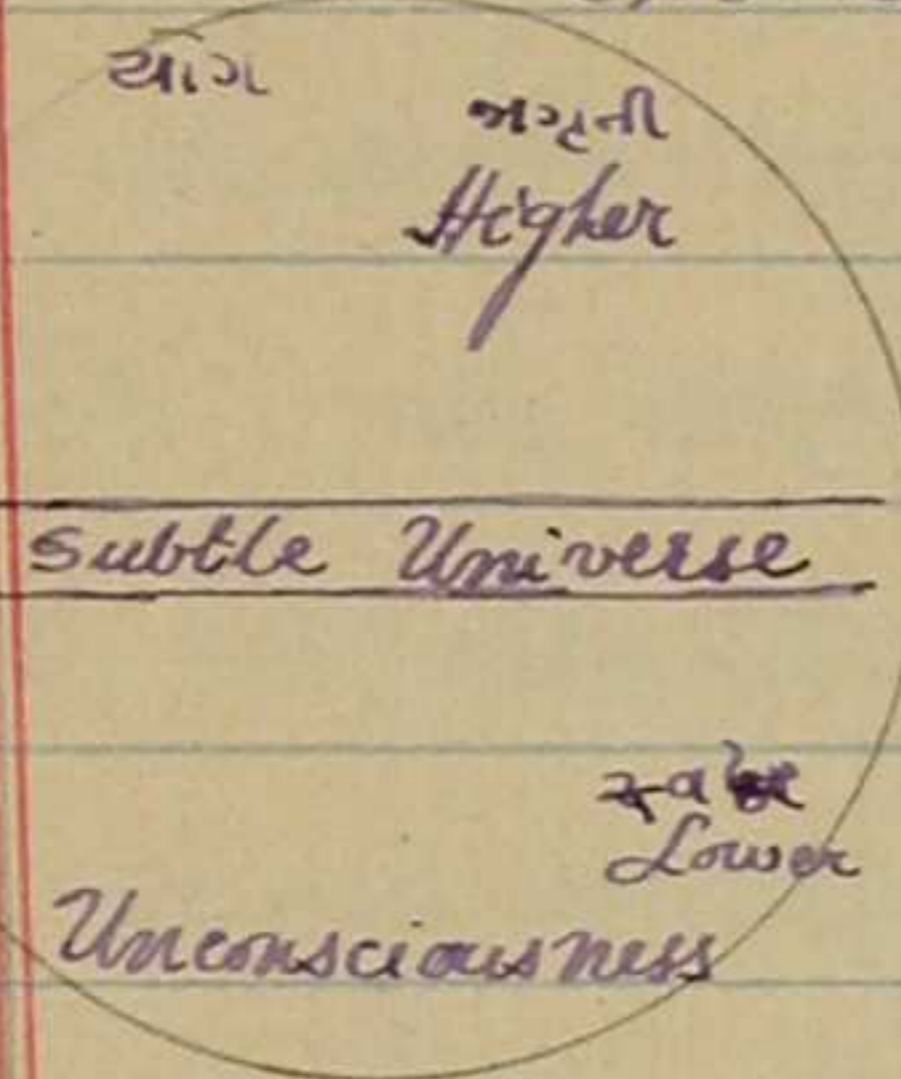 યોગ
જાગૃતી
Higher
Subtle Universe
Lower
Unconsciousness